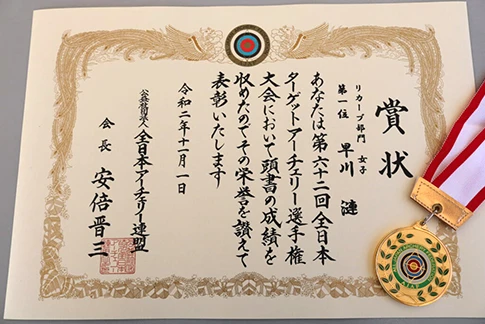 賞状
リカーブ部門 女子
第一位 早川 漣
あなたは第六十二回全日本
ターゲットアーチェリー選手権
大会において頭書の成績を
収めたのでその栄誉を讃えて
表彰いたします
令和二年十一月一日
公益社団法人 全日本アーチェリー連盟
会長 安倍晋三